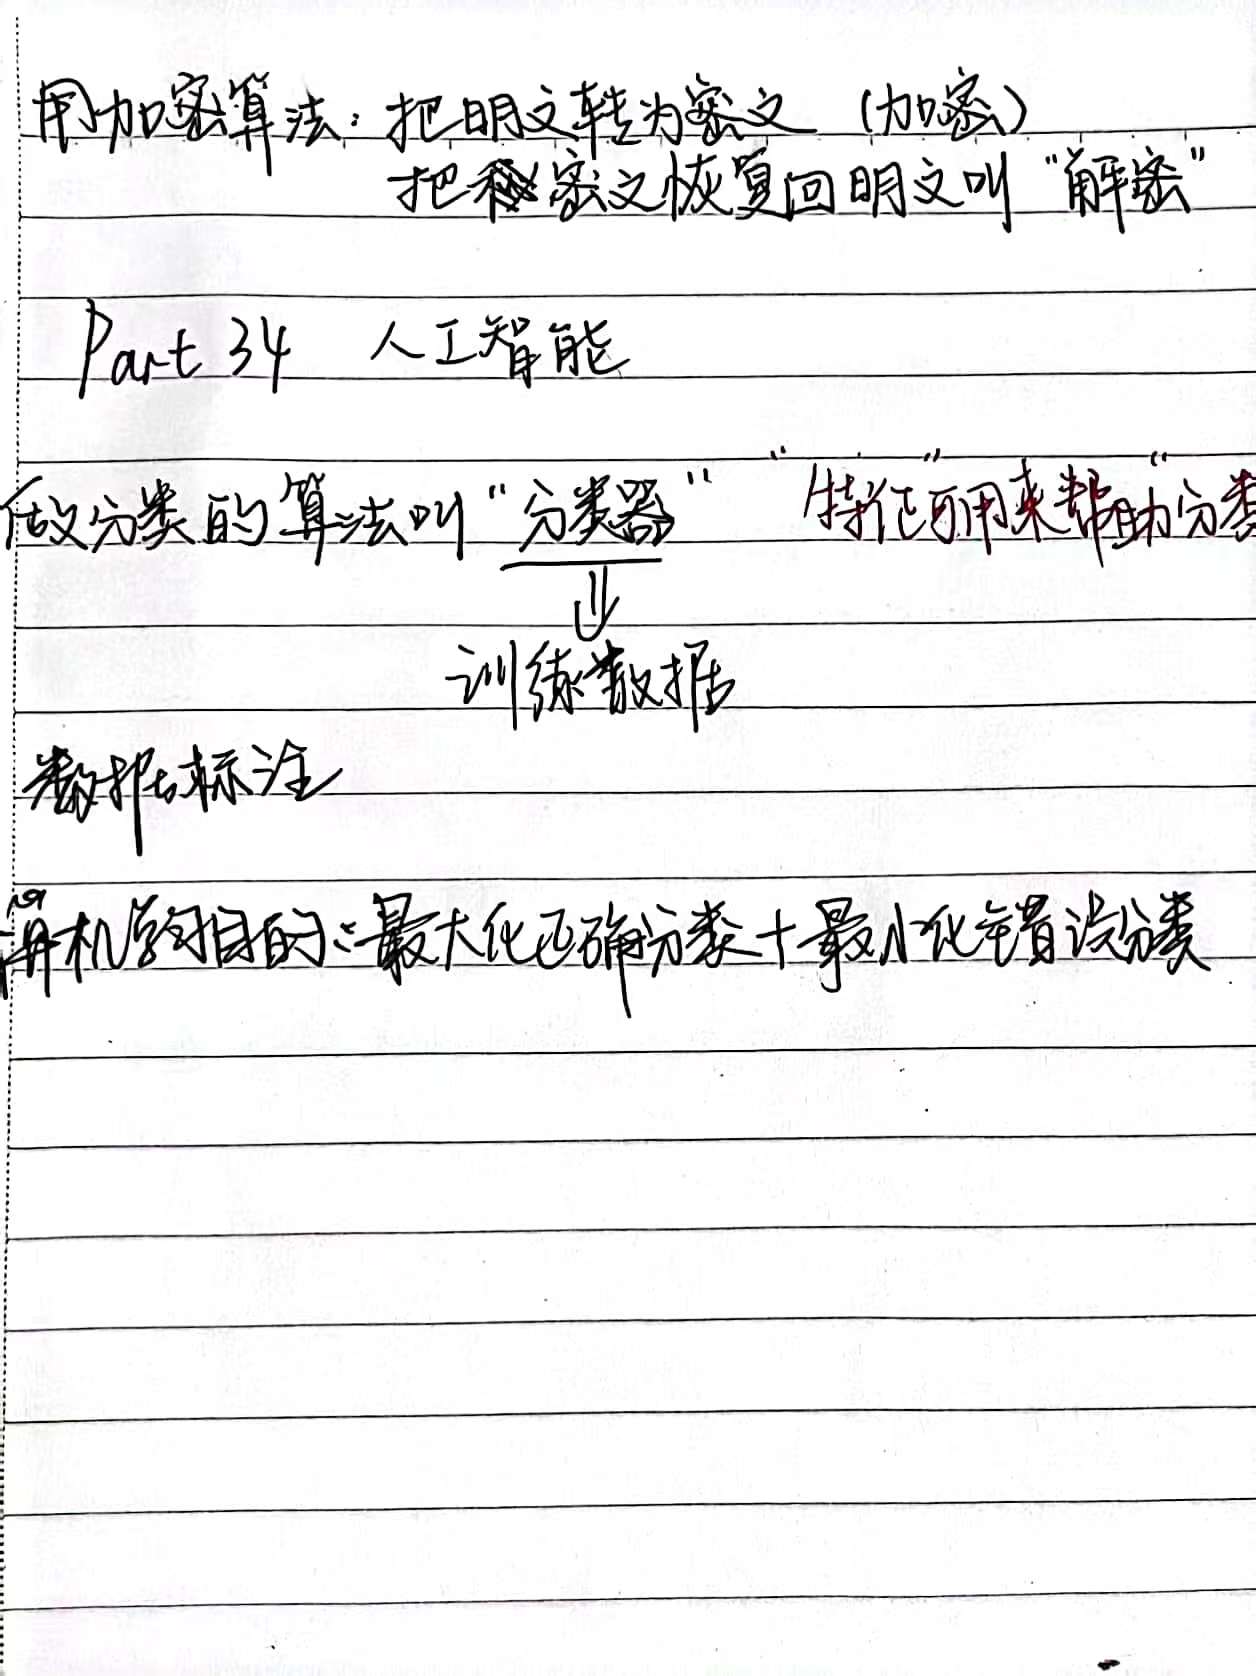 用加密算法：把明文转为密文（加密）
把密文恢复回明文叫“解密”
Part 34 人工智能
做分类的算法叫“分类器” “特征”可用来帮助“分类
训练数据
数据标注
机学习目的：最大化正确分类+最小化错误分类